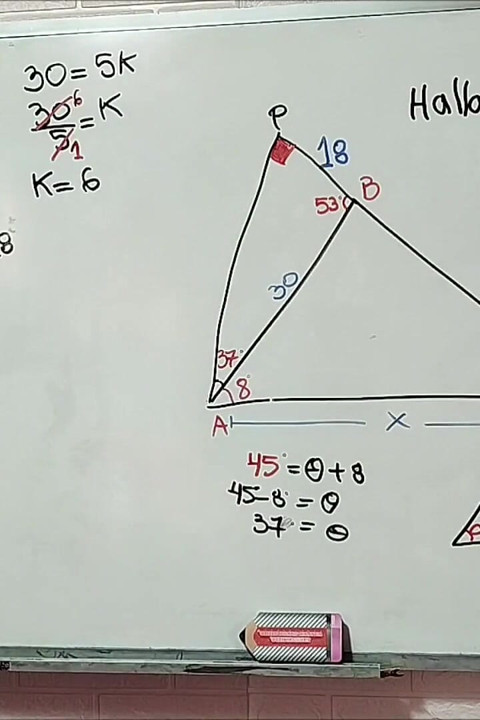 30=5K
30 6
5 1 =K
K=6
8
Halla
P
18
53° B
30
37°
8°
A
X
45°=θ+8
45-8°=θ
37°=θ